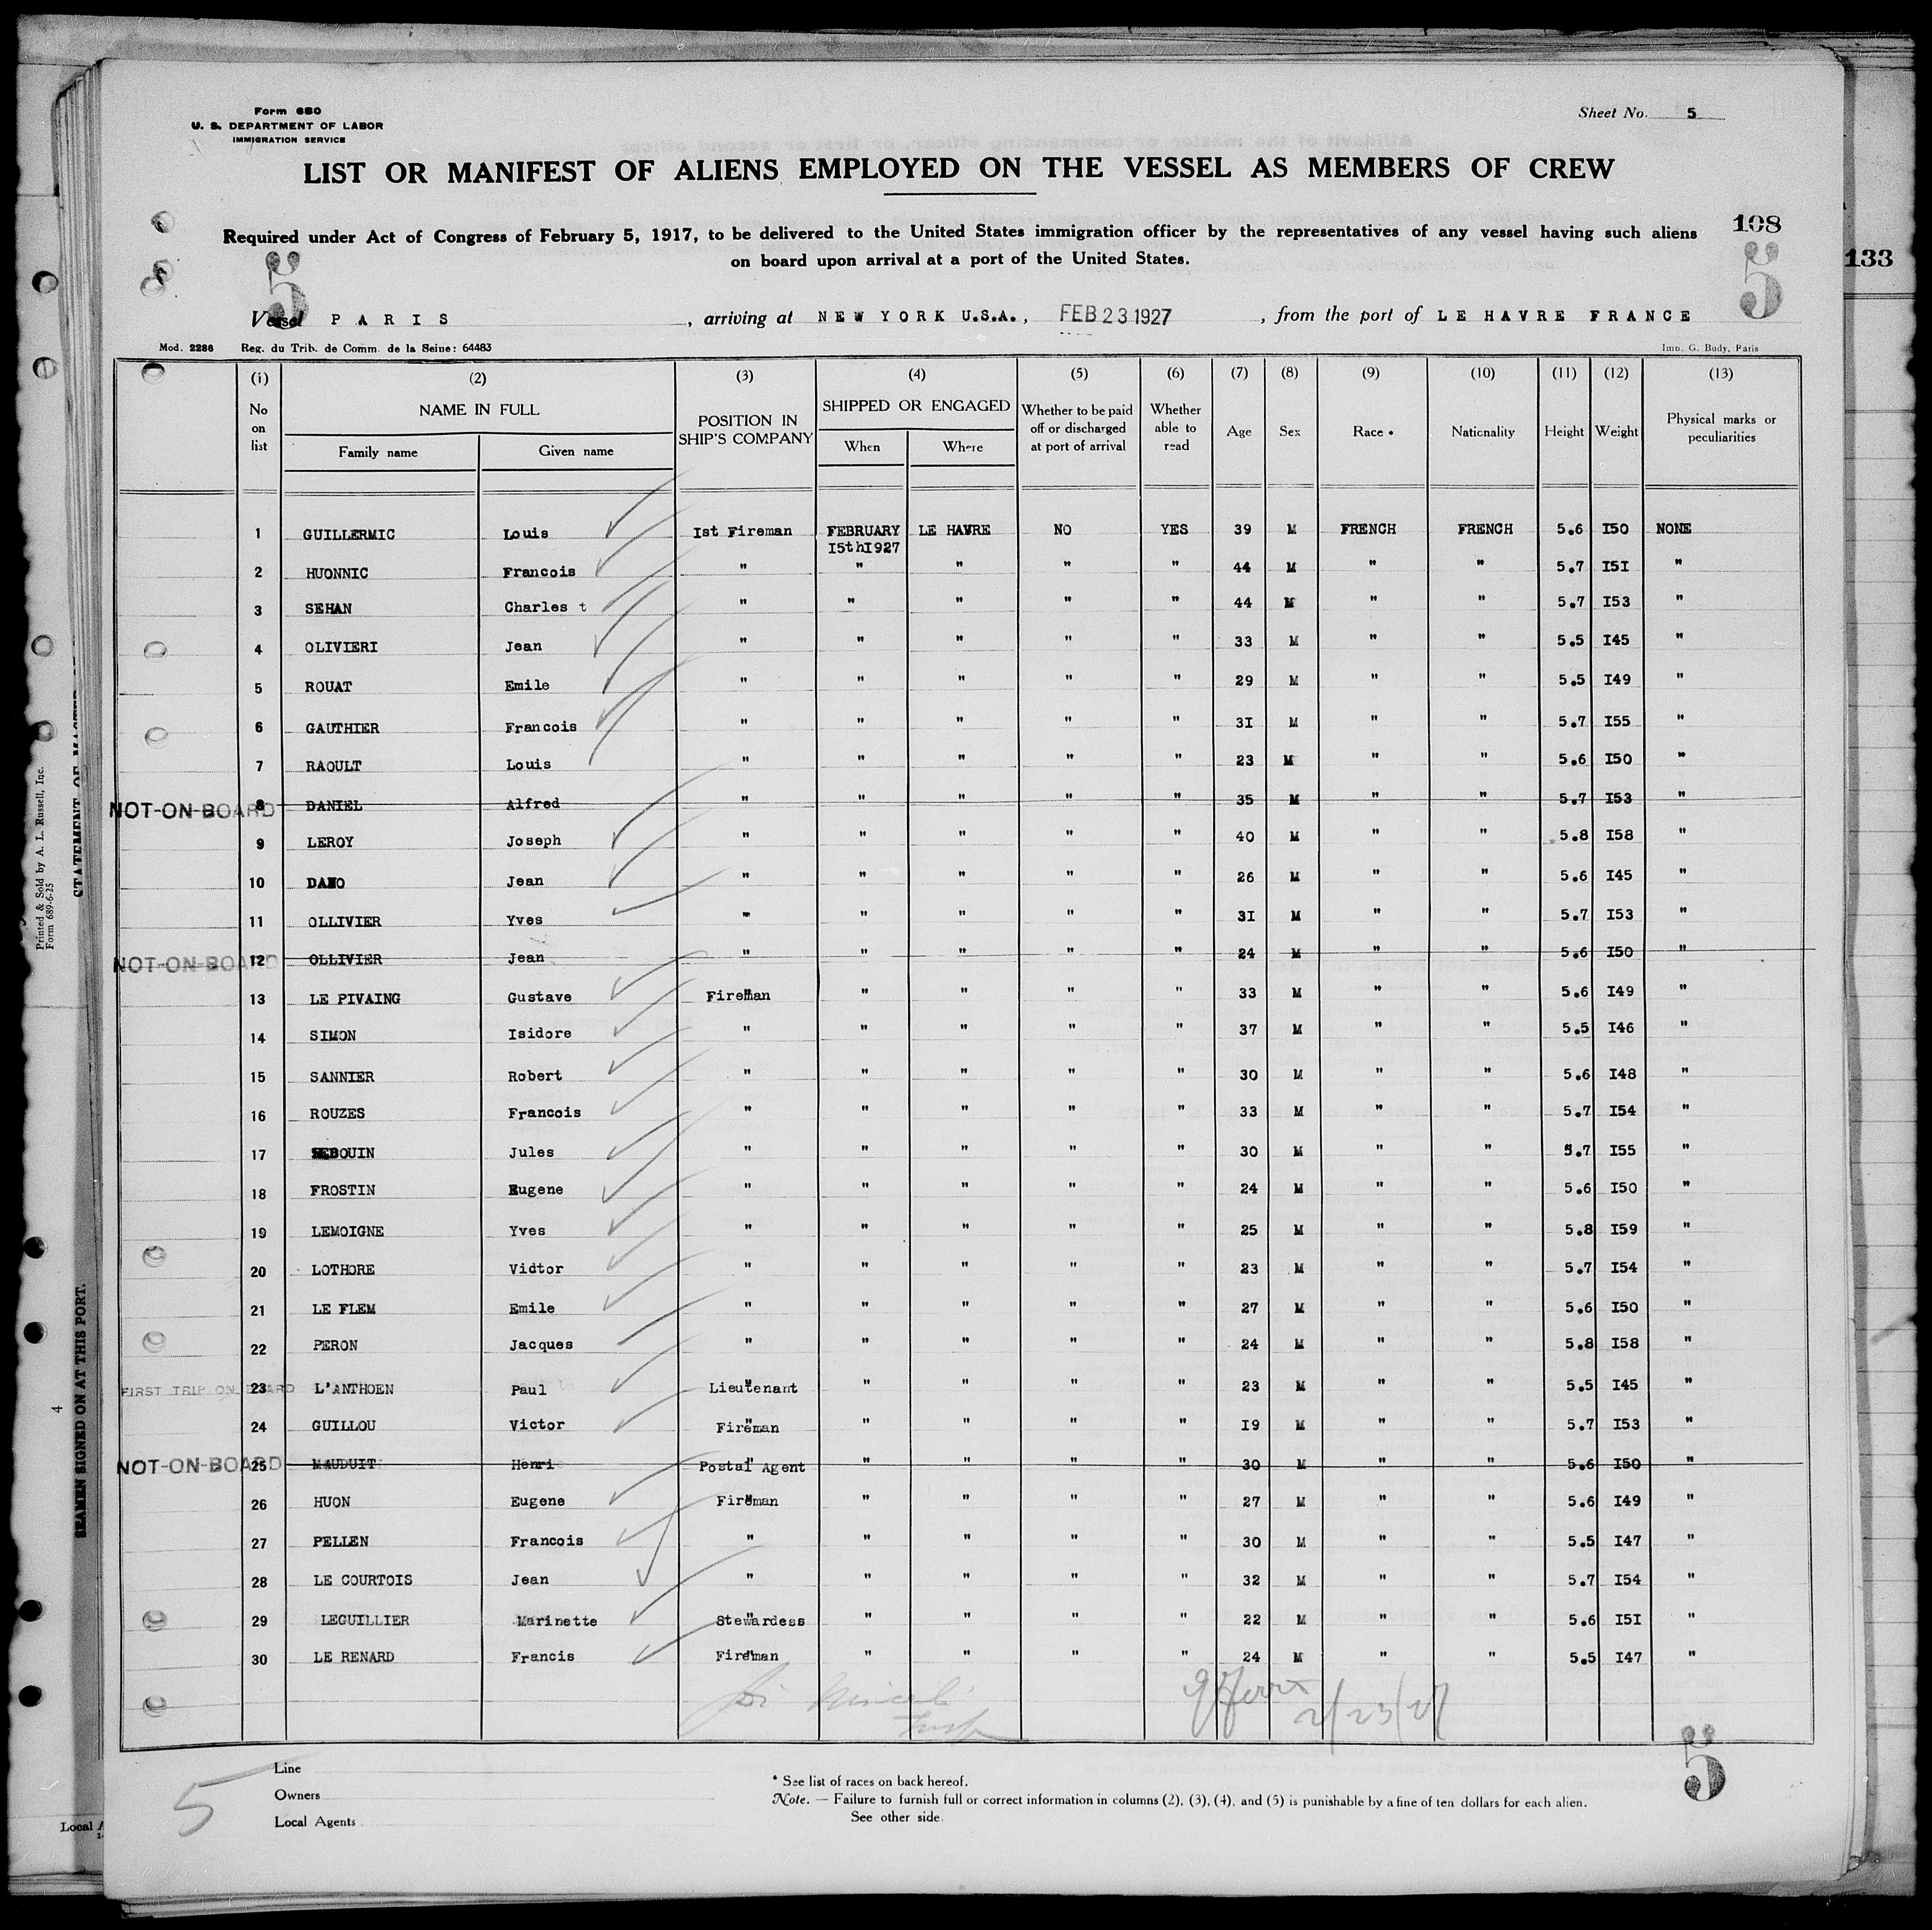 Form 680
U. S. DEPARTMENT OF LABOR
IMMIGRATION SERVICE
Sheet No. 5
LIST OR MANIFEST OF ALIENS EMPLOYED ON THE VESSEL AS MEMBERS OF CREW
108
133
Required under Act of Congress of February 5, 1917, to be delivered to the United States immigration officer by the representatives of any vessel having such aliens
on board upon arrival at a port of the United States.
5 5
Vessel PARIS, arriving at NEW YORK U.S.A., FEB 23 1927, from the port of LE HAVRE FRANCE
Mod. 2286 Reg. du Trib. de Comm. de la Seine: 64483 Imp. G. Budy, Paris
(1) (2) (3) (4) (5) (6) (7) (8) (9) (10) (11) (12) (13)
No on list NAME IN FULL Family name Given name POSITION IN SHIP'S COMPANY SHIPPED OR ENGAGED When Where Whether to be paid off or discharged at port of arrival Whether able to read Age Sex Race * Nationality Height Weight Physical marks or peculiarities
1 GUILLERMIC Louis Ist Fireman FEBRUARY I5thI927 LE HAVRE NO YES 39 M FRENCH FRENCH 5.6 I50 NONE
2 HUONNIC Francois " " " " " 44 M " " 5.7 I5I "
3 SEHAN Charles t " " " " " 44 M " " 5.7 I53 "
4 OLIVIERI Jean " " " " " 33 M " " 5.5 I45 "
5 ROUAT Emile " " " " " 29 M " " 5.5 I49 "
6 GAUTHIER Francois " " " " " 3I M " " 5.7 I55 "
7 RAOULT Louis " " " " " 23 M " " 5.6 I50 "
NOT-ON-BOARD 8 DANIEL Alfred " " " " " 35 M " " 5.7 I53 "
9 LEROY Joseph " " " " " 40 M " " 5.8 I58 "
10 Jean " " " " " 26 M " " 5.6 I45 "
11 OLLIVIER Yves " " " " " 3I M " " 5.7 I53 "
NOT-ON-BOARD 12 OLLIVIER Jean " " " " " 24 M " " 5.6 I50 "
13 LE PIVAING Gustave Fireman " " " " 33 M " " 5.6 I49 "
14 SIMON Isidore " " " " " 37 M " " 5.5 I46 "
15 SANNIER Robert " " " " " 30 M " " 5.6 I48 "
16 ROUZES Francois " " " " " 33 M " " 5.7 I54 "
17 Jules " " " " " 30 M " " 5.7 I55 "
18 FROSTIN Eugene " " " " " 24 M " " 5.6 I50 "
19 LEMOIGNE Yves " " " " " 25 M " " 5.8 I59 "
20 LOTHORE Vidtor " " " " " 23 M " " 5.7 I54 "
21 LE FLEM Emile " " " " " 27 M " " 5.6 I50 "
22 PERON Jacques " " " " " 24 M " " 5.8 I58 "
FIRST TRIP ON BOARD 23 L'ANTHOEN Paul Lieutenant " " " " 23 M " " 5.5 I45 "
24 GUILLOU Victor Fireman " " " " I9 M " " 5.7 I53 "
NOT-ON-BOARD 25 MAUDUIT Henri Postal Agent " " " " 30 M " " 5.6 I50 "
26 HUON Eugene Fireman " " " " 27 M " " 5.6 I49 "
27 PELLEN Francois " " " " " 30 M " " 5.5 I47 "
28 LE COURTOIS Jean " " " " " 32 M " " 5.7 I54 "
29 LEGUILLIER Marinette Stewardess " " " " 22 M " " 5.6 I5I "
30 LE RENARD Francis Fireman " " " " 24 M " " 5.5 I47 "
2/23/27
5
5
Line
Owners
Local Agents
* See list of races on back hereof.
Note. — Failure to furnish full or correct information in columns (2), (3), (4), and (5) is punishable by a fine of ten dollars for each alien.
See other side.
Printed & Sold by A. L. Russell, Inc.
Form 689-6-25
SEAMEN SIGNED ON AT THIS PORT.
4
Local